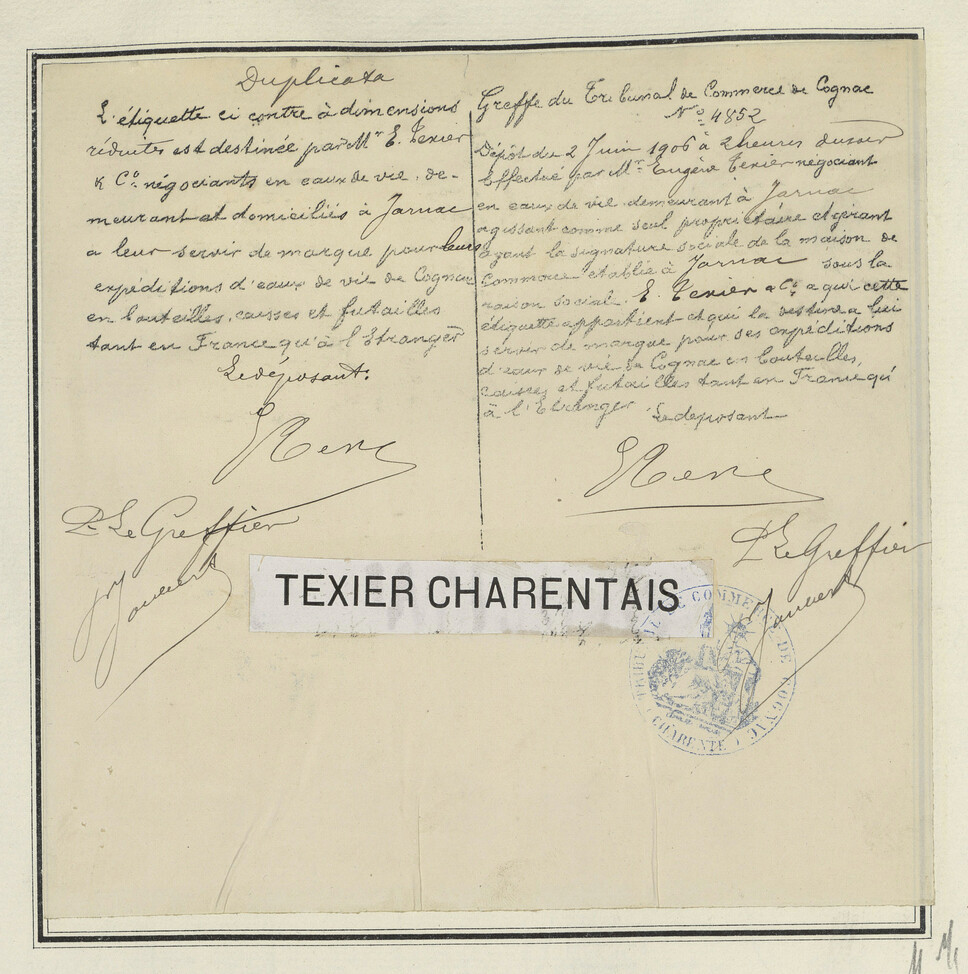 Duplicata
L'étiquette ci contre à dimensions
réduites est destinée par Mr E. Texier
& Co. négociants en eaux de vie, de-
meurant et domiciliés à Jarnac
a leur servir de marque pour leurs
expéditions d'eaux de vie de Cognac
en bouteilles, caisses et futailles
tant en France qu'à l'Etranger
Le déposant.
P. Le Greffier
Greffe du Tribunal de Commerce de Cognac
No 4852
Dépôt du 2 Juin 1906 à 2 heures du soir
Effectué par Mr. Eugène Texier négociant
en eaux de vie demeurant à Jarnac
agissant comme seul propriétaire et gérant
ayant la signature sociale de la maison de
Commerce établie à Jarnac sous la
raison social. E. Texier & Co a qui cette
étiquette appartient et qui la destine a lui
servir de marque pour ses expéditions
d'eaux de vie de Cognac en bouteilles,
caisses et futailles tant en France qu'
à l'Etranger Le deposant
P. Le Greffier
TEXIER CHARENTAIS
TRIBUNAL DE COMMERCE DE COGNAC
(CHARENTE)